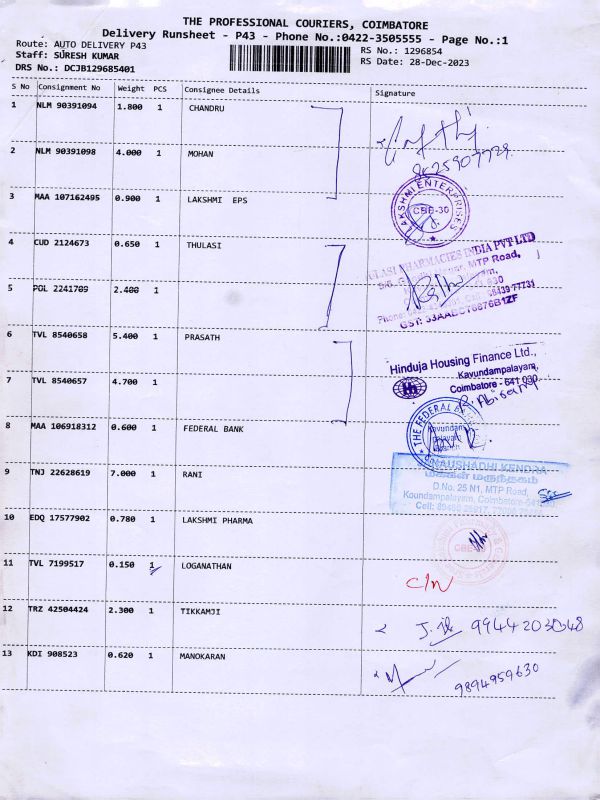 THE PROFESSIONAL COURIERS, COIMBATORE
Delivery Runsheet - P43 - Phone No.:0422-3505555 - Page No.:1
Route: AUTO DELIVERY P43 RS No.: 1296854
Staff: SURESH KUMAR RS Date: 28-Dec-2023
DRS No.: DCJB129685401
S No Consignment No Weight PCS Consignee Details Signature
1 NLM 90391094 1.800 1 CHANDRU
2 NLM 90391098 4.000 1 MOHAN
3 MAA 107162495 0.900 1 LAKSHMI EPS
LAKSHMI ENTERPRISES
CBE-30
4 CUD 2124673 0.650 1 THULASI
PHARMACIES INDIA PVT LTD
MTP Road,
5 POL 2241709 2.400 1
6 TVL 8540658 5.400 1 PRASATH
Hinduja Housing Finance Ltd.,
Kavundampalayam,
Coimbatore - 641 030.
7 TVL 8540657 4.700 1
8 MAA 106918312 0.600 1 FEDERAL BANK
THE FEDERAL BANK
9 TNJ 22628619 7.000 1 RANI
KENDRA
மக்கள் மருந்தகம்
D.No. 25 N1, MTP Road,
Koundampalayam, Coimbatore
10 EDQ 17577902 0.780 1 LAKSHMI PHARMA
11 TVL 7199517 0.150 1 LOGANATHAN
C/N
12 TRZ 42504424 2.300 1 TIKKAMJI
13 KDI 908523 0.620 1 MANOKARAN
9894959630